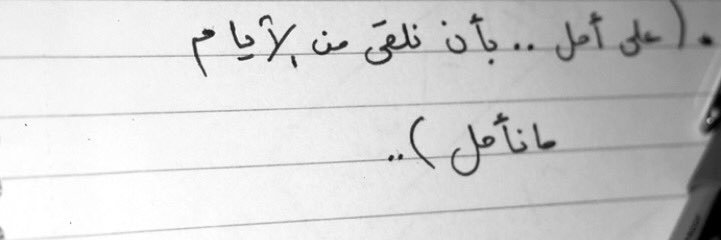 .(على أمل .. بأن نلقى من الأيام
مانأمل )..